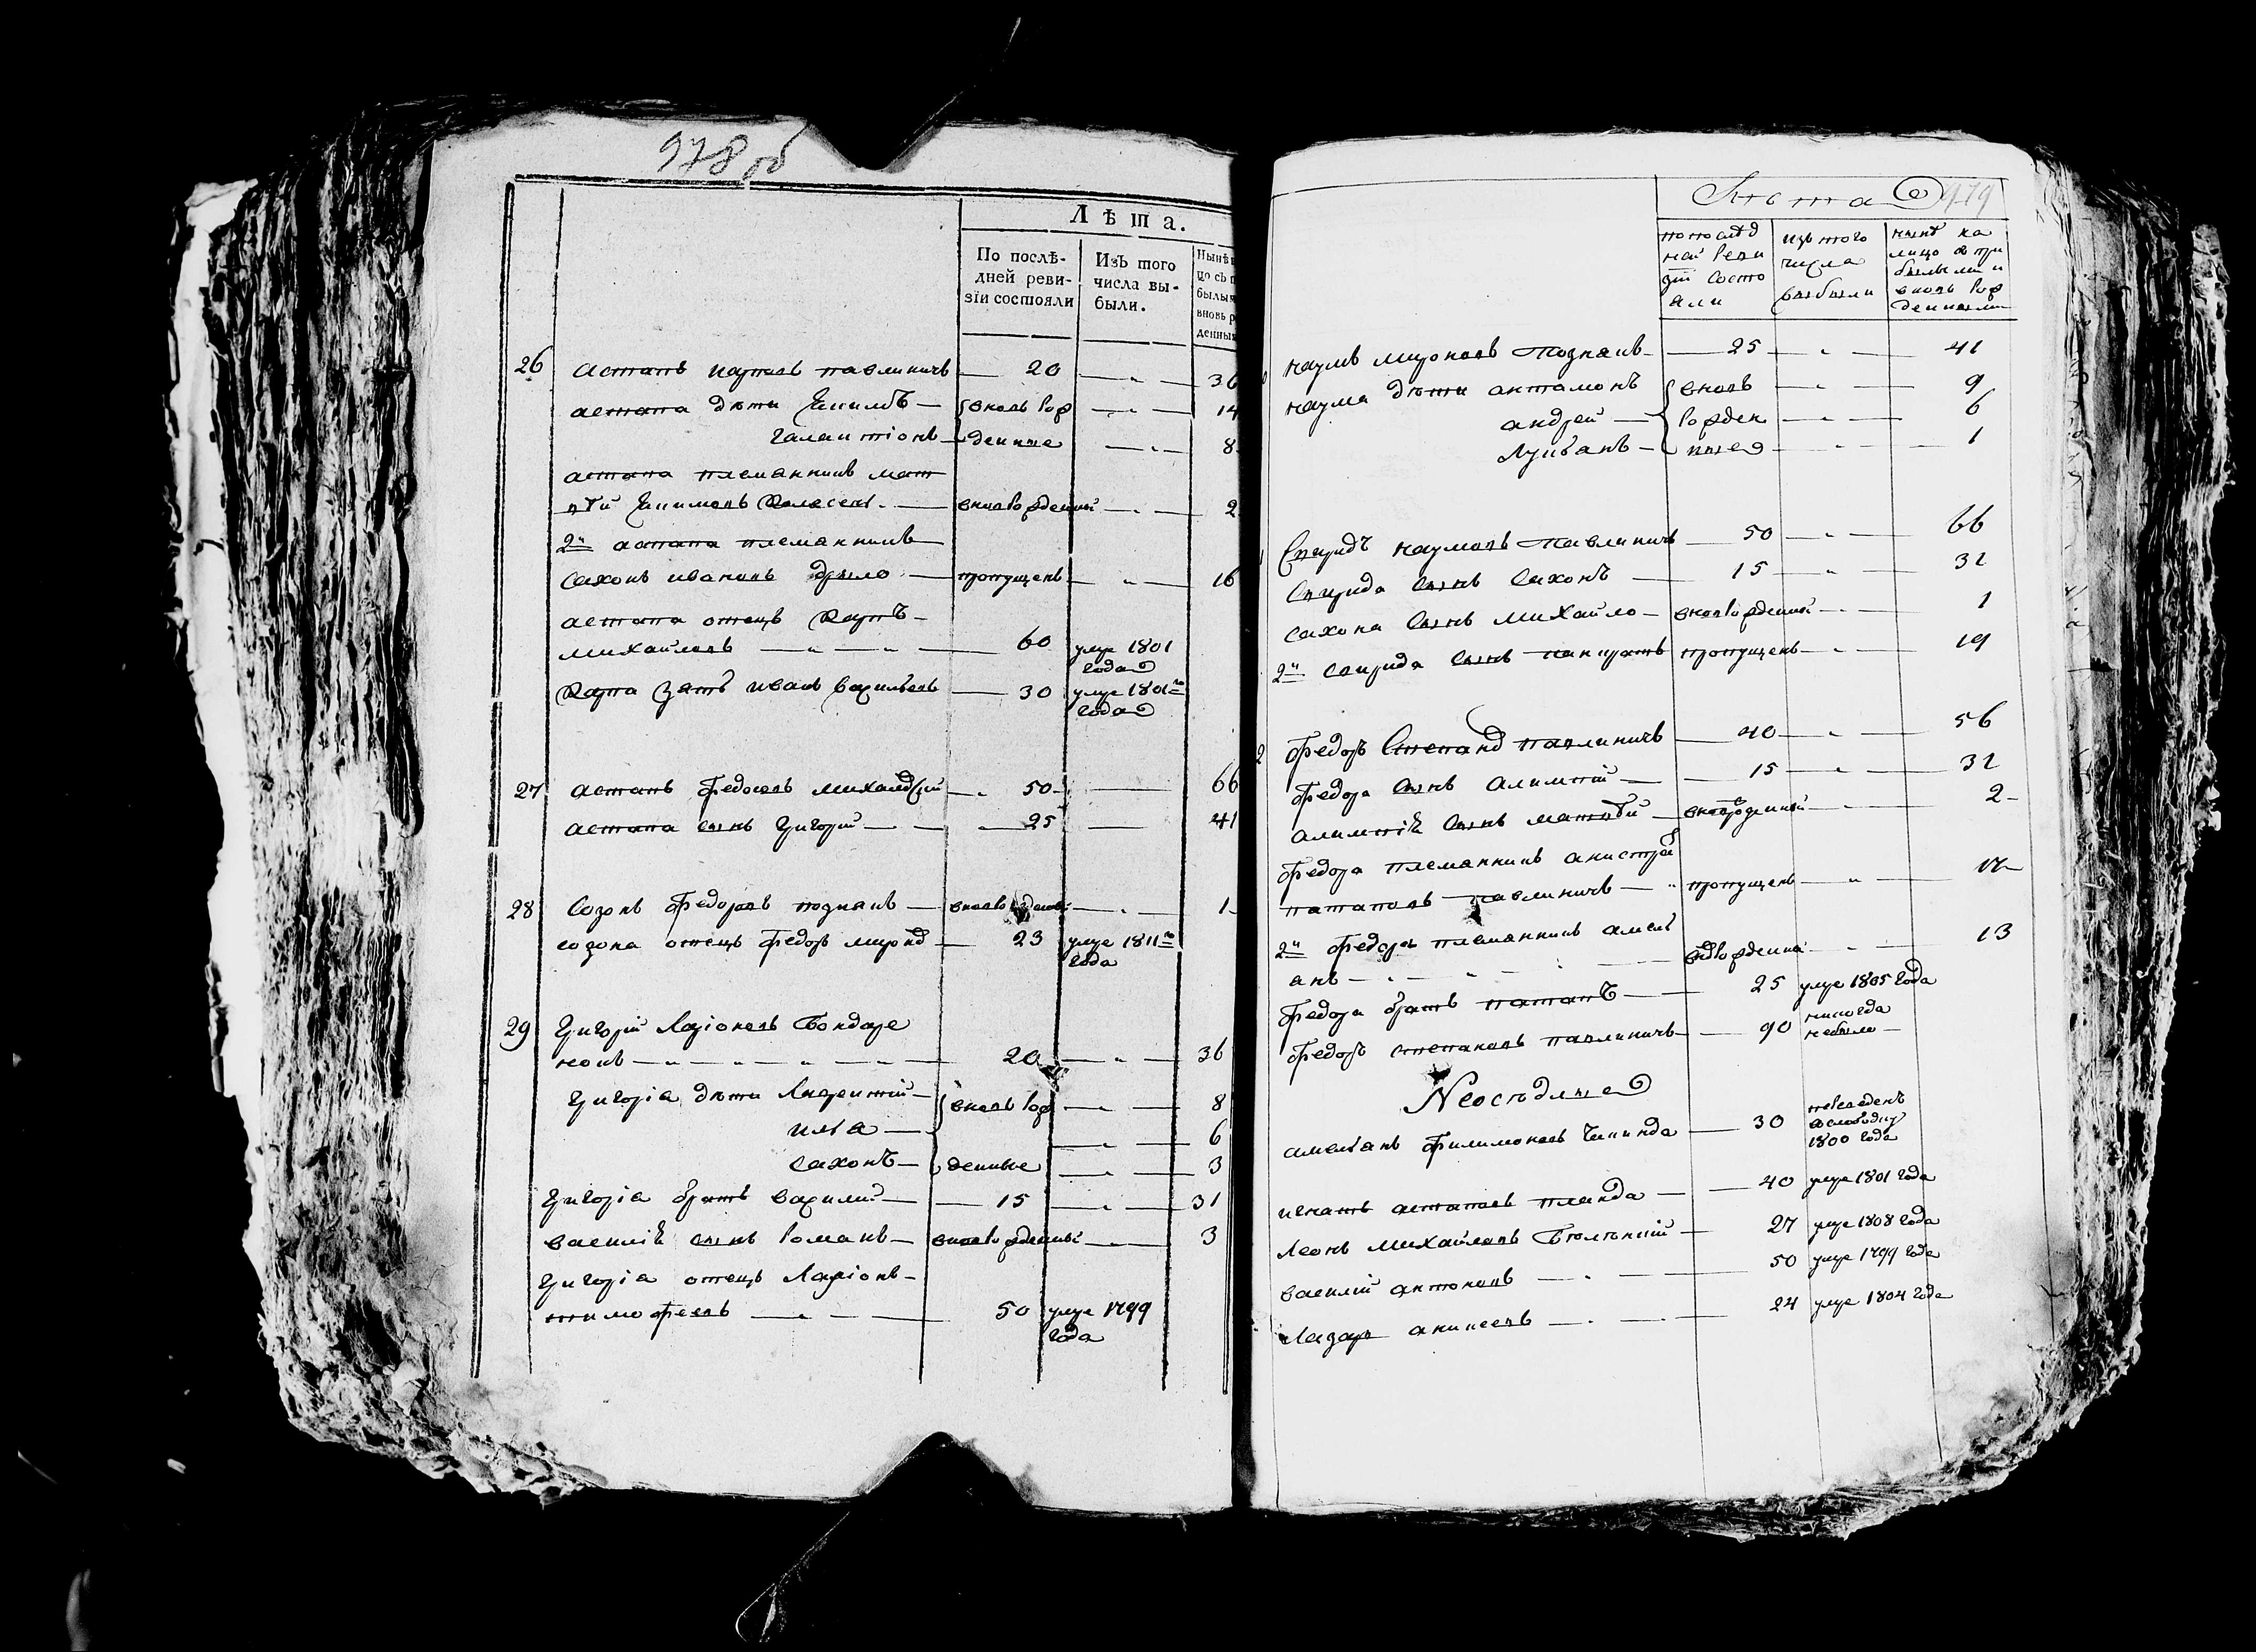 978 об
Лѣта.
По послѣ-
дней реви-
зїи состояли
Изъ того
числа вы-
были.
26 Астапъ Карповъ павлиничъ — 20 — „ — 36
астапа дѣти Якимъ — вновь рож — „ — 14
галактіонъ — денные — „ — 8
астапа племянникъ мат
вѣй Якимовъ — вноврожденный — „ — 2
2й астапа племянникъ
Сахонъ ивановъ — пропущенъ — „ — 16
астапа отецъ Карпъ —
михайловъ — „ — „ — 60 умре 1801
года
Карпа зять иванъ Васильевъ — 30 умре 1801го
года
27 Астапъ Федоровъ — 50 — 66
астапа сынъ Григорій — 25 — 41
28 Созонъ Федоровъ познякъ — — „ — 1
созона отецъ Федоръ — 23 умре 1811го
года
29 Григорій Ларіоновъ Бондаре
нокъ — „ — „ — „ — „ — 20 — „ — 36
Григорія дѣти Лаврентій — вновь рож — „ — 8
илья — — „ — 6
сахонъ — денные — „ — 3
Григорія братъ василий — 15 — „ — 31
василій сынъ Романъ — вноврожденный — „ — 3
Григорія отецъ Ларіонъ —
тимофеевъ — „ — 50 умре 1799
года
Лѣта 979
по послѣд
ней реви
зїи состо
яли
изъ того
числа
выбыли
нынѣ на
лицо с при
былыми и
вновь рож
денными
Наумъ мироновъ позняк — 25 — „ — 41
наума дѣти антамонъ вновь — „ — 9
андрей — рожден — „ — 6
Лукьянъ — ные — „ — 1
Спиридъ наумовъ павлиничъ — 50 — „ — 66
Спирида сынъ Сахонъ — 15 — „ — 31
сахона сынъ михайло — вноврожденной — „ — 1
2й спирида сынъ панкратъ пропущенъ — „ — 19
Федоръ павлиничъ — 40 — „ — 56
Федора сынъ алимпій — 15 — „ — 31
алимпія сынъ матвѣй — — „ — 2
Федора племянникъ
патаповъ павлиничъ — „ пропущенъ — „ — 17
2й Федора племянникъ амел
янъ — „ — „ — — „ — 13
Федора братъ патапъ — 25 умре 1805 года
Федоръ степановъ павлиничъ — 90 никогда
небыло
Неосѣдлые
амельянъ Филимоновъ — 30 переведенъ
в слободку
1800 года
игнатъ астаповъ — 40 умре 1801 года
Леонъ михайловъ — 27 умре 1808 года
василій антоновъ — „ — 50 умре 1799 года
Лазарь аникеевъ — „ — 24 умре 1804 года